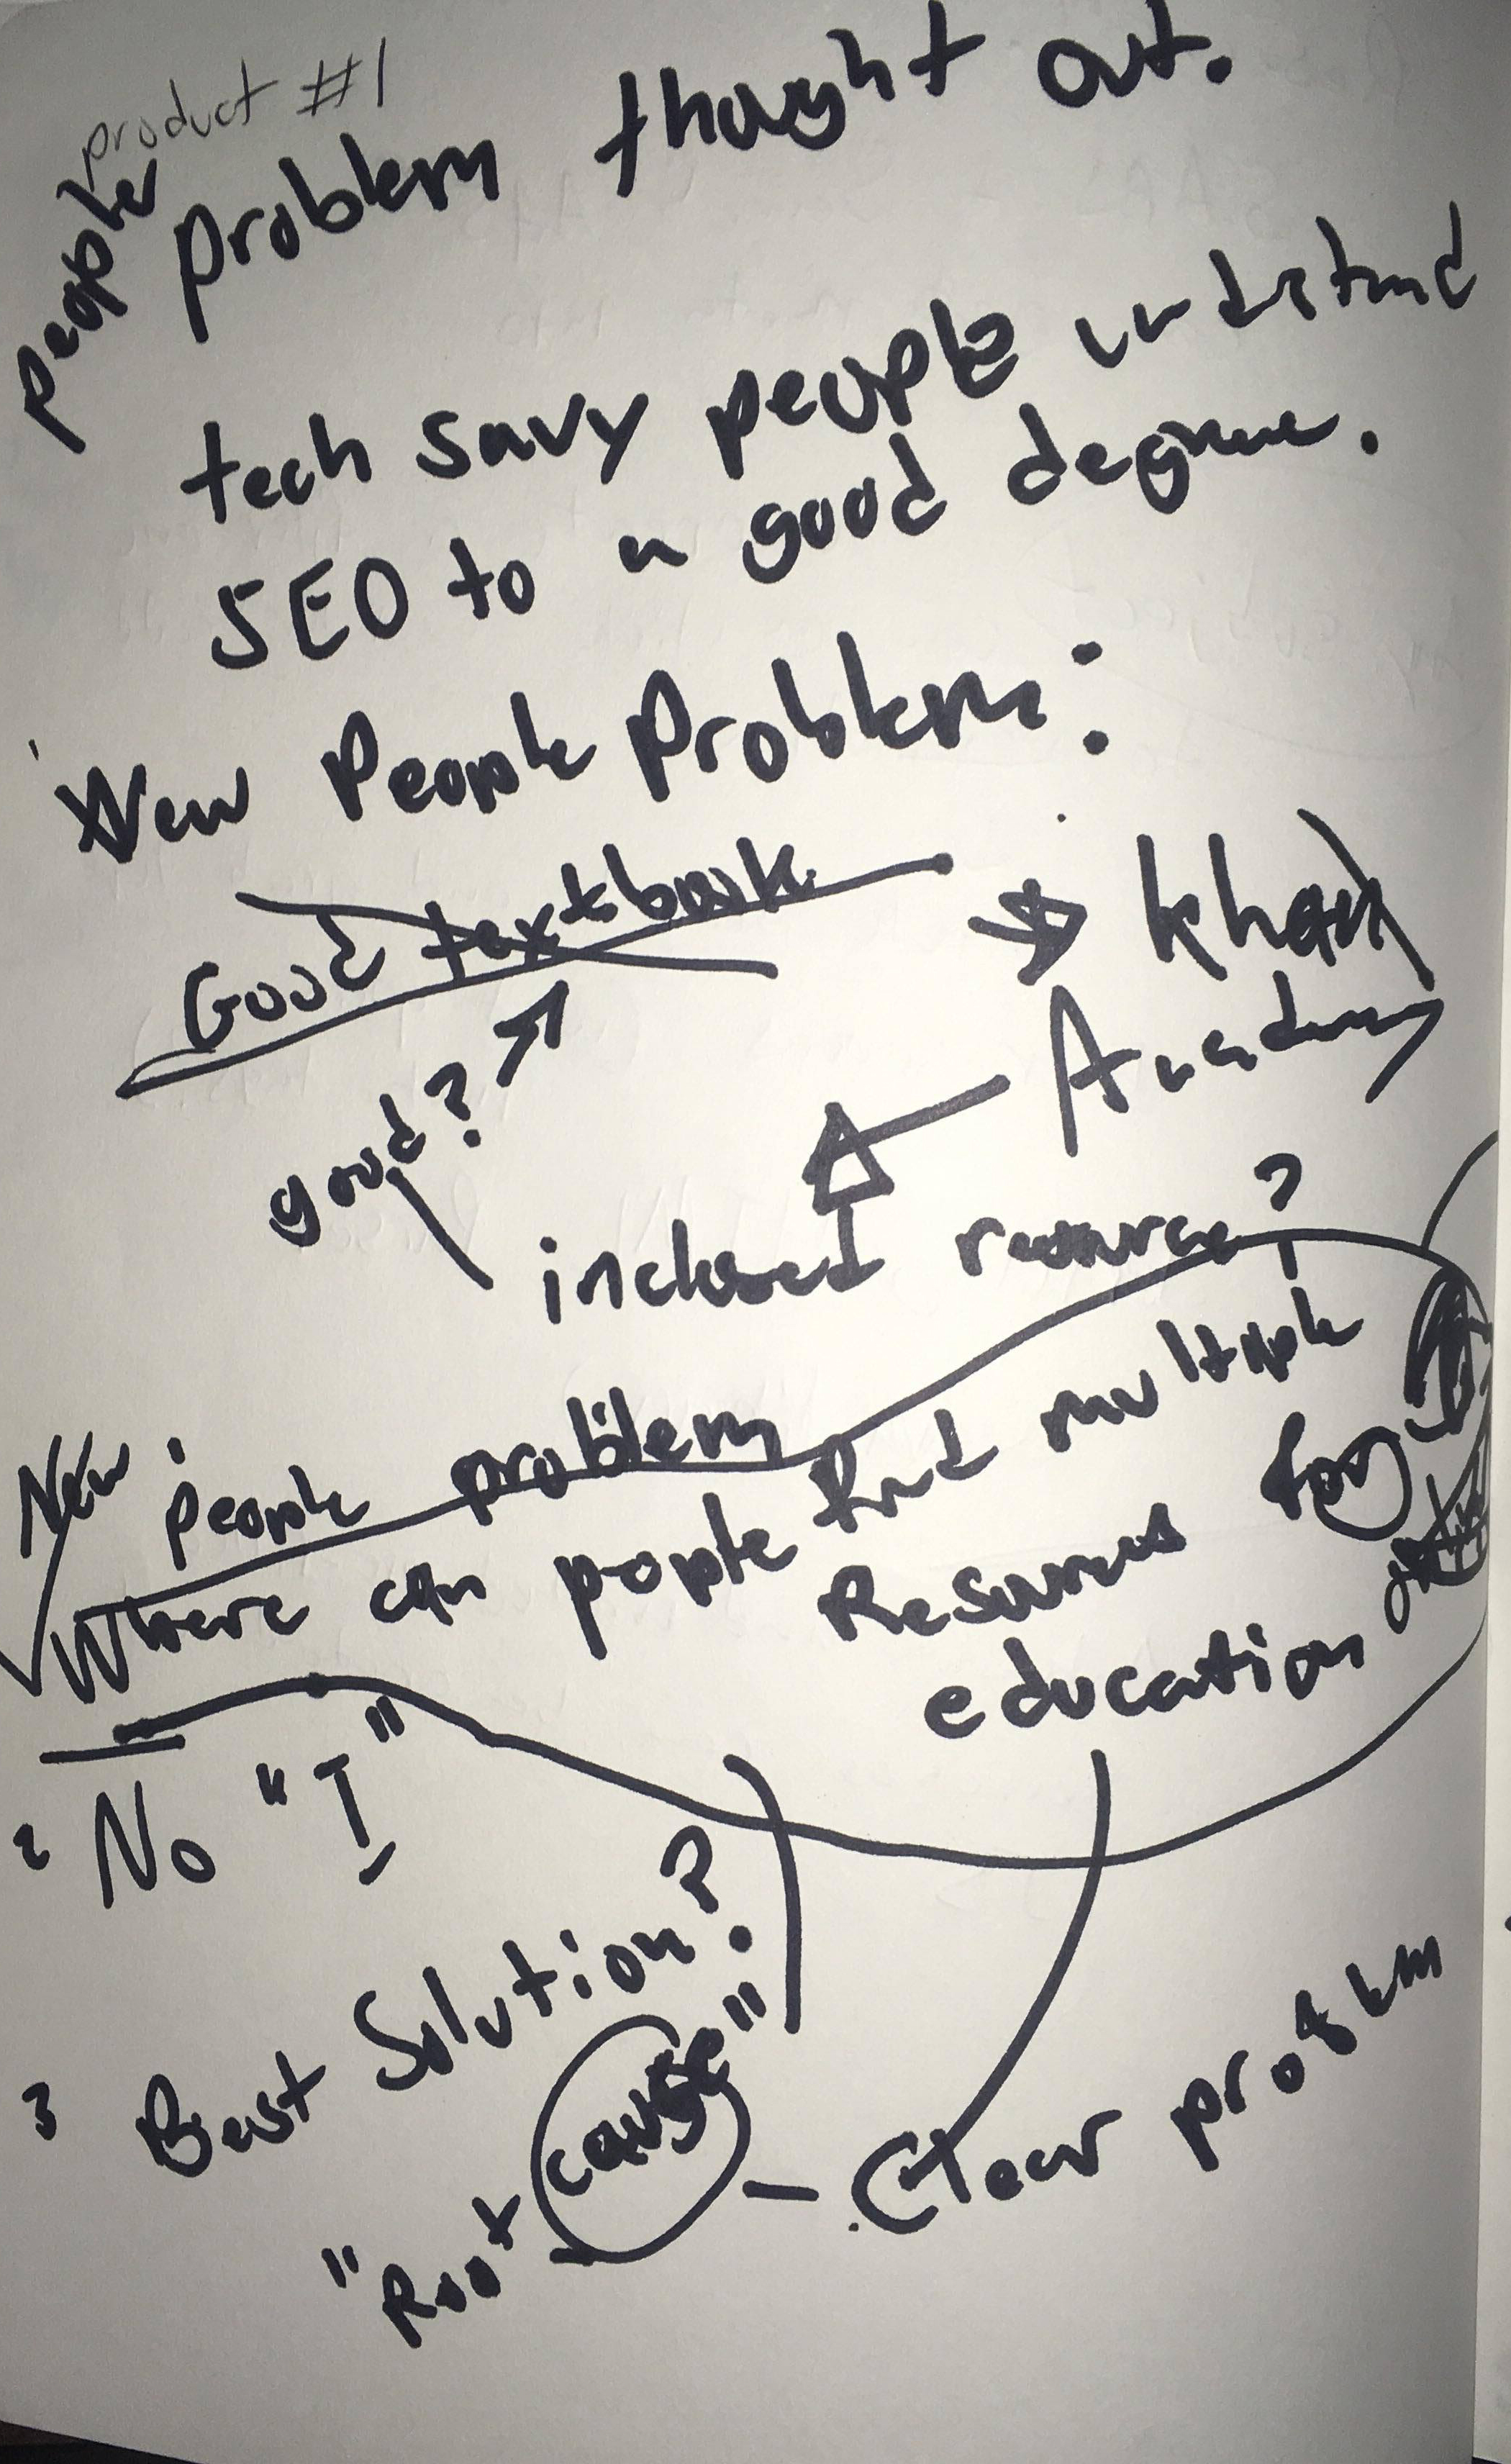 product #1
people problem thought out.
tech savy people understand
SEO to a good degree.
New People Problem:
Good textbook → Khan
Academy
good? ↗
inclosed resource?
New people problem
Where can people find multiple
Resources for
education
2 No "I"
3 Best Solution?
"Root cause" - Clear problem